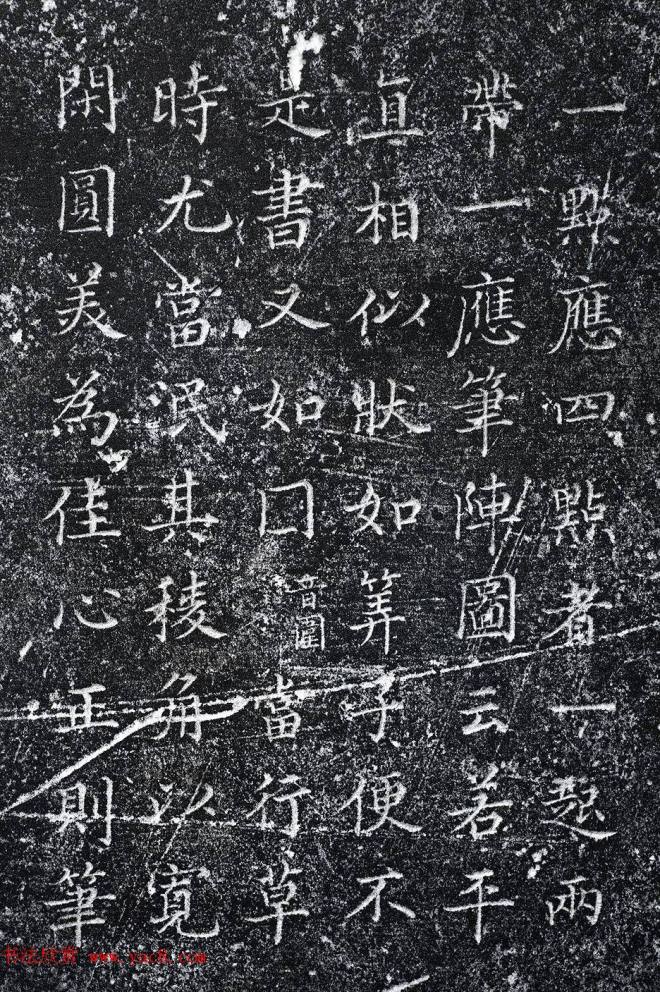 一點應四點者一起兩
帶一應筆陣圖云若平
直相似狀如筭子便不
是書又如囗音圍當行草
時尤當泯其稜角以寬
閑圓美為佳心正則筆
书法欣赏 www.yac8.com